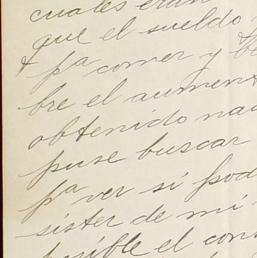 cuales eran
que el sueldo
pa comer y
bre el aumen
obtenido na
puse buscar
pa ver si pod
sister de mi
posible el con